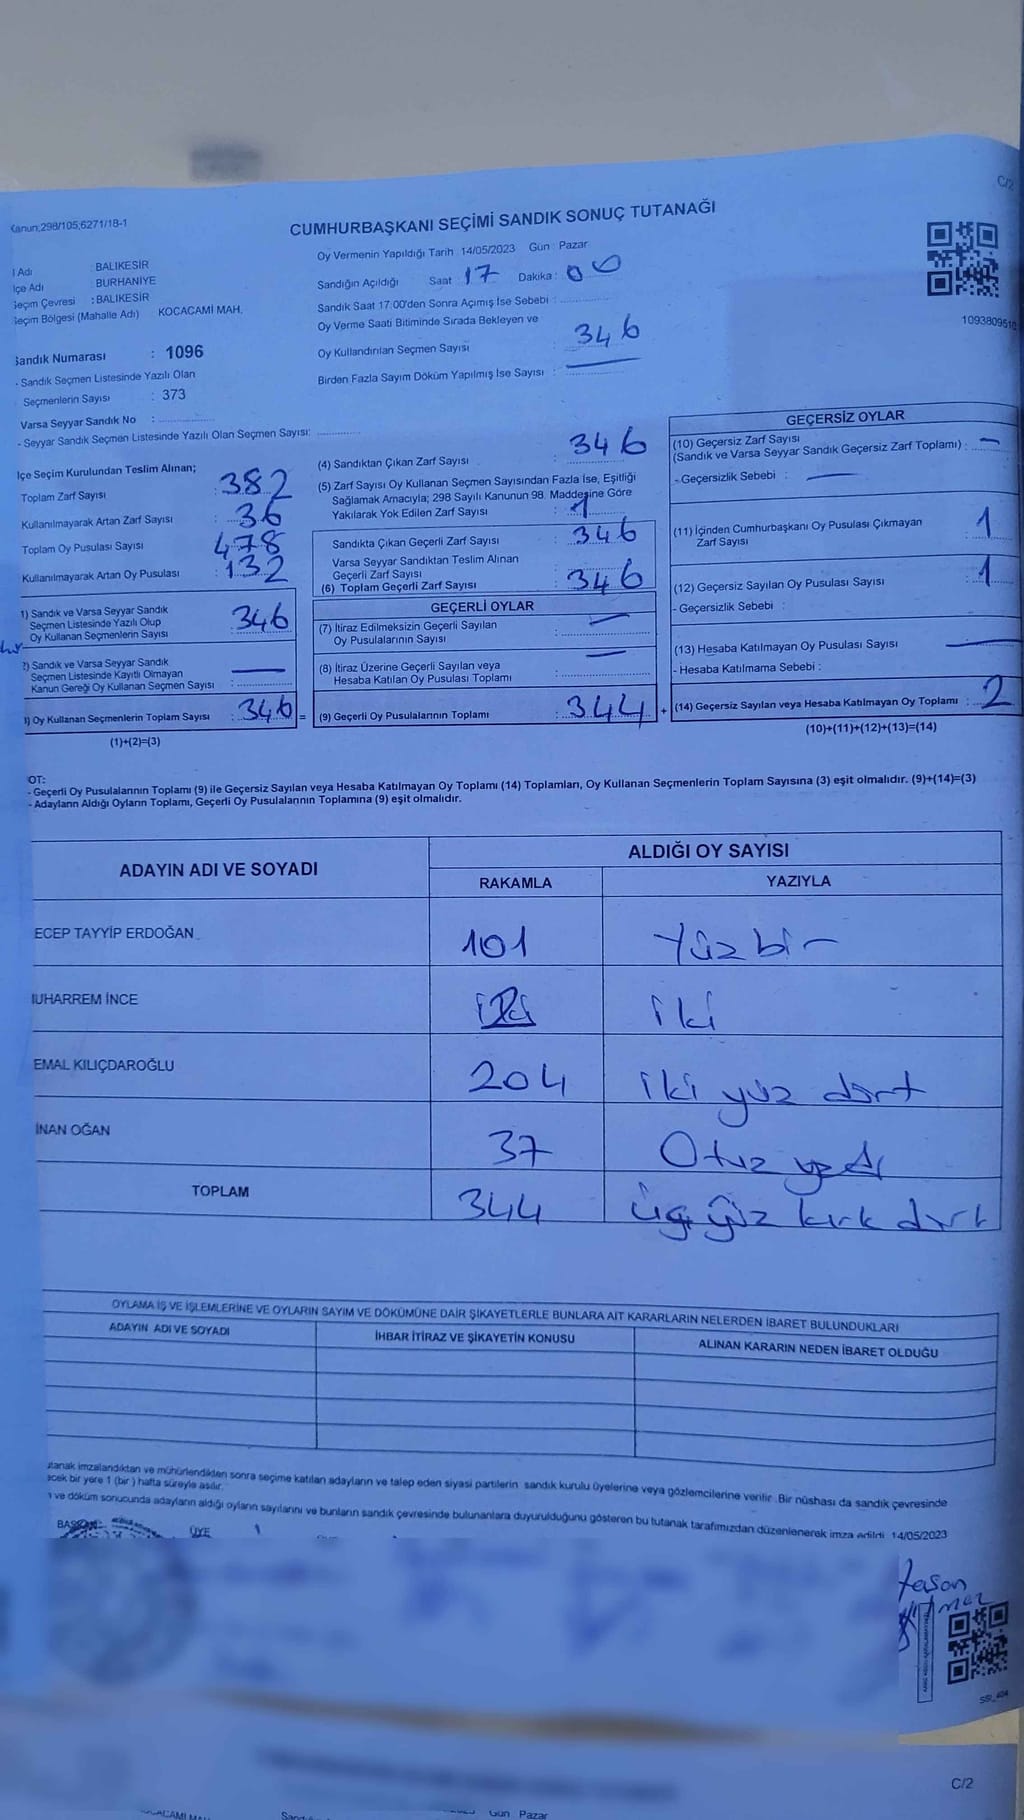 C/2
Kanun;298/105;6271/18-1
CUMHURBAŞKANI SEÇİMİ SANDIK SONUÇ TUTANAĞI
Oy Vermenin Yapıldığı Tarih : 14/05/2023 Gün : Pazar
l Adı : BALIKESİR
lçe Adı : BURHANİYE
Seçim Çevresi : BALIKESİR
Seçim Bölgesi (Mahalle Adı) KOCACAMİ MAH.
Sandığın Açıldığı Saat 17 Dakika : 00
Sandık Saat 17:00'den Sonra Açımış İse Sebebi :
Oy Verme Saati Bitiminde Sırada Bekleyen ve
Oy Kullandırılan Seçmen Sayısı : 346
Birden Fazla Sayım Döküm Yapılmış İse Sayısı : —
1093809510
Sandık Numarası : 1096
- Sandık Seçmen Listesinde Yazılı Olan
Seçmenlerin Sayısı : 373
Varsa Seyyar Sandık No :
- Seyyar Sandık Seçmen Listesinde Yazılı Olan Seçmen Sayısı:
lçe Seçim Kurulundan Teslim Alınan;
Toplam Zarf Sayısı : 382
Kullanılmayarak Artan Zarf Sayısı : 36
Toplam Oy Pusulası Sayısı : 478
Kullanılmayarak Artan Oy Pusulası : 132
1) Sandık ve Varsa Seyyar Sandık
Seçmen Listesinde Yazılı Olup
Oy Kullanan Seçmenlerin Sayısı 346
2) Sandık ve Varsa Seyyar Sandık
Seçmen Listesinde Kayıtlı Olmayan
Kanun Gereği Oy Kullanan Seçmen Sayısı : —
3) Oy Kullanan Seçmenlerin Toplam Sayısı : 346 =
(1)+(2)=(3)
(4) Sandıktan Çıkan Zarf Sayısı : 346
(5) Zarf Sayısı Oy Kullanan Seçmen Sayısından Fazla İse, Eşitliği
Sağlamak Amacıyla; 298 Sayılı Kanunun 98. Maddesine Göre
Yakılarak Yok Edilen Zarf Sayısı : 1
Sandıkta Çıkan Geçerli Zarf Sayısı : 346
Varsa Seyyar Sandıktan Teslim Alınan
Geçerli Zarf Sayısı
(6) Toplam Geçerli Zarf Sayısı : 346
GEÇERLİ OYLAR
(7) İtiraz Edilmeksizin Geçerli Sayılan
Oy Pusulalarının Sayısı : —
(8) İtiraz Üzerine Geçerli Sayılan veya
Hesaba Katılan Oy Pusulası Toplamı : —
(9) Geçerli Oy Pusulalarının Toplamı : 344 +
GEÇERSİZ OYLAR
(10) Geçersiz Zarf Sayısı
(Sandık ve Varsa Seyyar Sandık Geçersiz Zarf Toplamı) : —
- Geçersizlik Sebebi : —
(11) İçinden Cumhurbaşkanı Oy Pusulası Çıkmayan
Zarf Sayısı : 1
(12) Geçersiz Sayılan Oy Pusulası Sayısı : 1
- Geçersizlik Sebebi :
(13) Hesaba Katılmayan Oy Pusulası Sayısı : —
- Hesaba Katılmama Sebebi :
(14) Geçersiz Sayılan veya Hesaba Katılmayan Oy Toplamı : 2
(10)+(11)+(12)+(13)=(14)
OT:
- Geçerli Oy Pusulalarının Toplamı (9) ile Geçersiz Sayılan veya Hesaba Katılmayan Oy Toplamı (14) Toplamları, Oy Kullanan Seçmenlerin Toplam Sayısına (3) eşit olmalıdır. (9)+(14)=(3)
- Adayların Aldığı Oyların Toplamı, Geçerli Oy Pusulalarının Toplamına (9) eşit olmalıdır.
ADAYIN ADI VE SOYADI
ALDIĞI OY SAYISI
RAKAMLA YAZIYLA
ECEP TAYYİP ERDOĞAN 101 Yüz bir
UHARREM İNCE 2 iki
EMAL KILIÇDAROĞLU 204 iki yüz dört
İNAN OĞAN 37 Otuz yedi
TOPLAM 344 üç yüz kırk dört
OYLAMA İŞ VE İŞLEMLERİNE VE OYLARIN SAYIM VE DÖKÜMÜNE DAİR ŞİKAYETLERLE BUNLARA AİT KARARLARIN NELERDEN İBARET BULUNDUKLARI
ADAYIN ADI VE SOYADI İHBAR İTİRAZ VE ŞİKAYETİN KONUSU ALINAN KARARIN NEDEN İBARET OLDUĞU
utanak imzalandıktan ve mühürlendikten sonra seçime katılan adayların ve talep eden siyasi partilerin sandık kurulu üyelerine veya gözlemcilerine verilir. Bir nüshası da sandık çevresinde
ecek bir yere 1 (bir ) hafta süreyle asılır.
ve döküm sonucunda adayların aldığı oyların sayılarını ve bunların sandık çevresinde bulunanlara duyurulduğunu gösteren bu tutanak tarafımızdan düzenlenerek imza edildi. 14/05/2023
BAŞKAN ÜYE
C/2
KOCACAMİ MAH
Gün Pazar